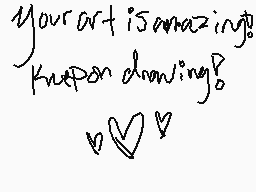 Your art is amazing!
Keep on drawing!